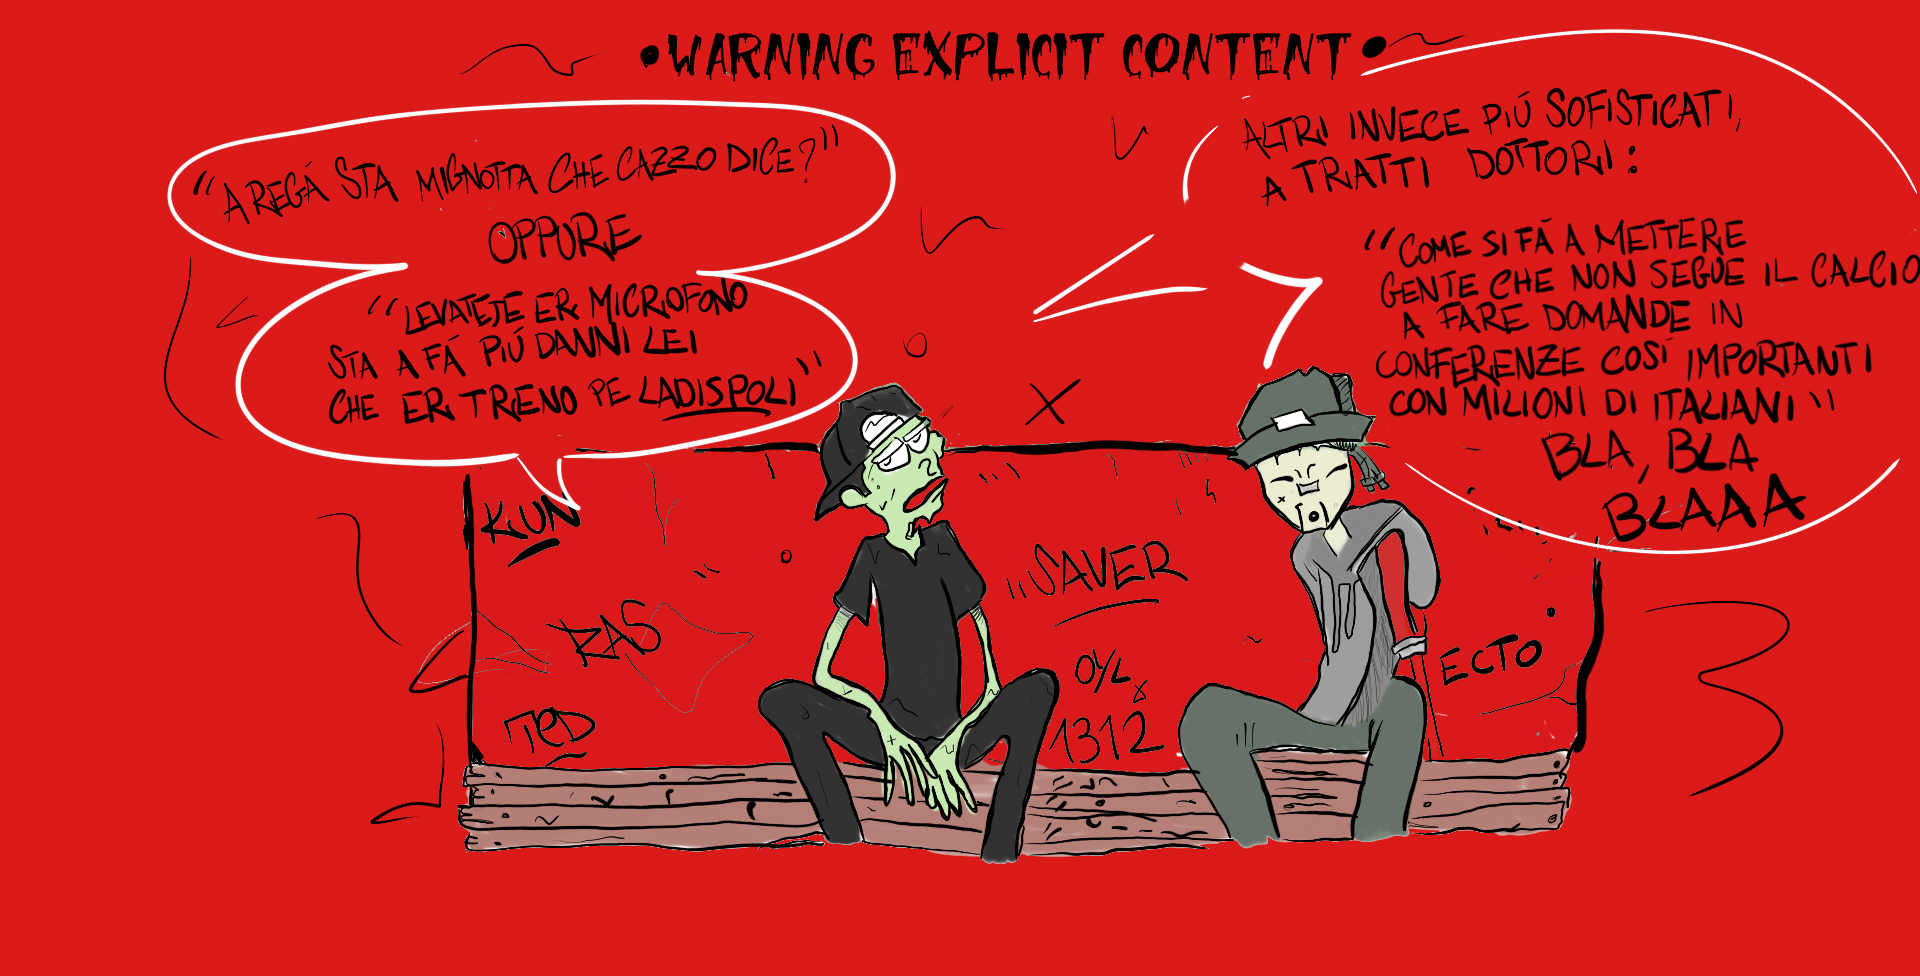 •WARNING EXPLICIT CONTENT•
"A REGÁ STA MIGNOTTA CHE CAZZO DICE?"
OPPURE
"LEVATEJE ER MICROFONO
STA A FÁ PIÚ DANNI LEI
CHE ER TRENO PE LADISPOLI"
ALTRI INVECE PIÚ SOFISTICATI,
A TRATTI DOTTORI:
"COME SI FÁ A METTERE
GENTE CHE NON SEGUE IL CALCIO
A FARE DOMANDE IN
CONFERENZE COSÍ IMPORTANTI
CON MILIONI DI ITALIANI"
BLA, BLA
BLAAA
KUN
"SAVER
RAS
OYL
ECTO
TED
1312